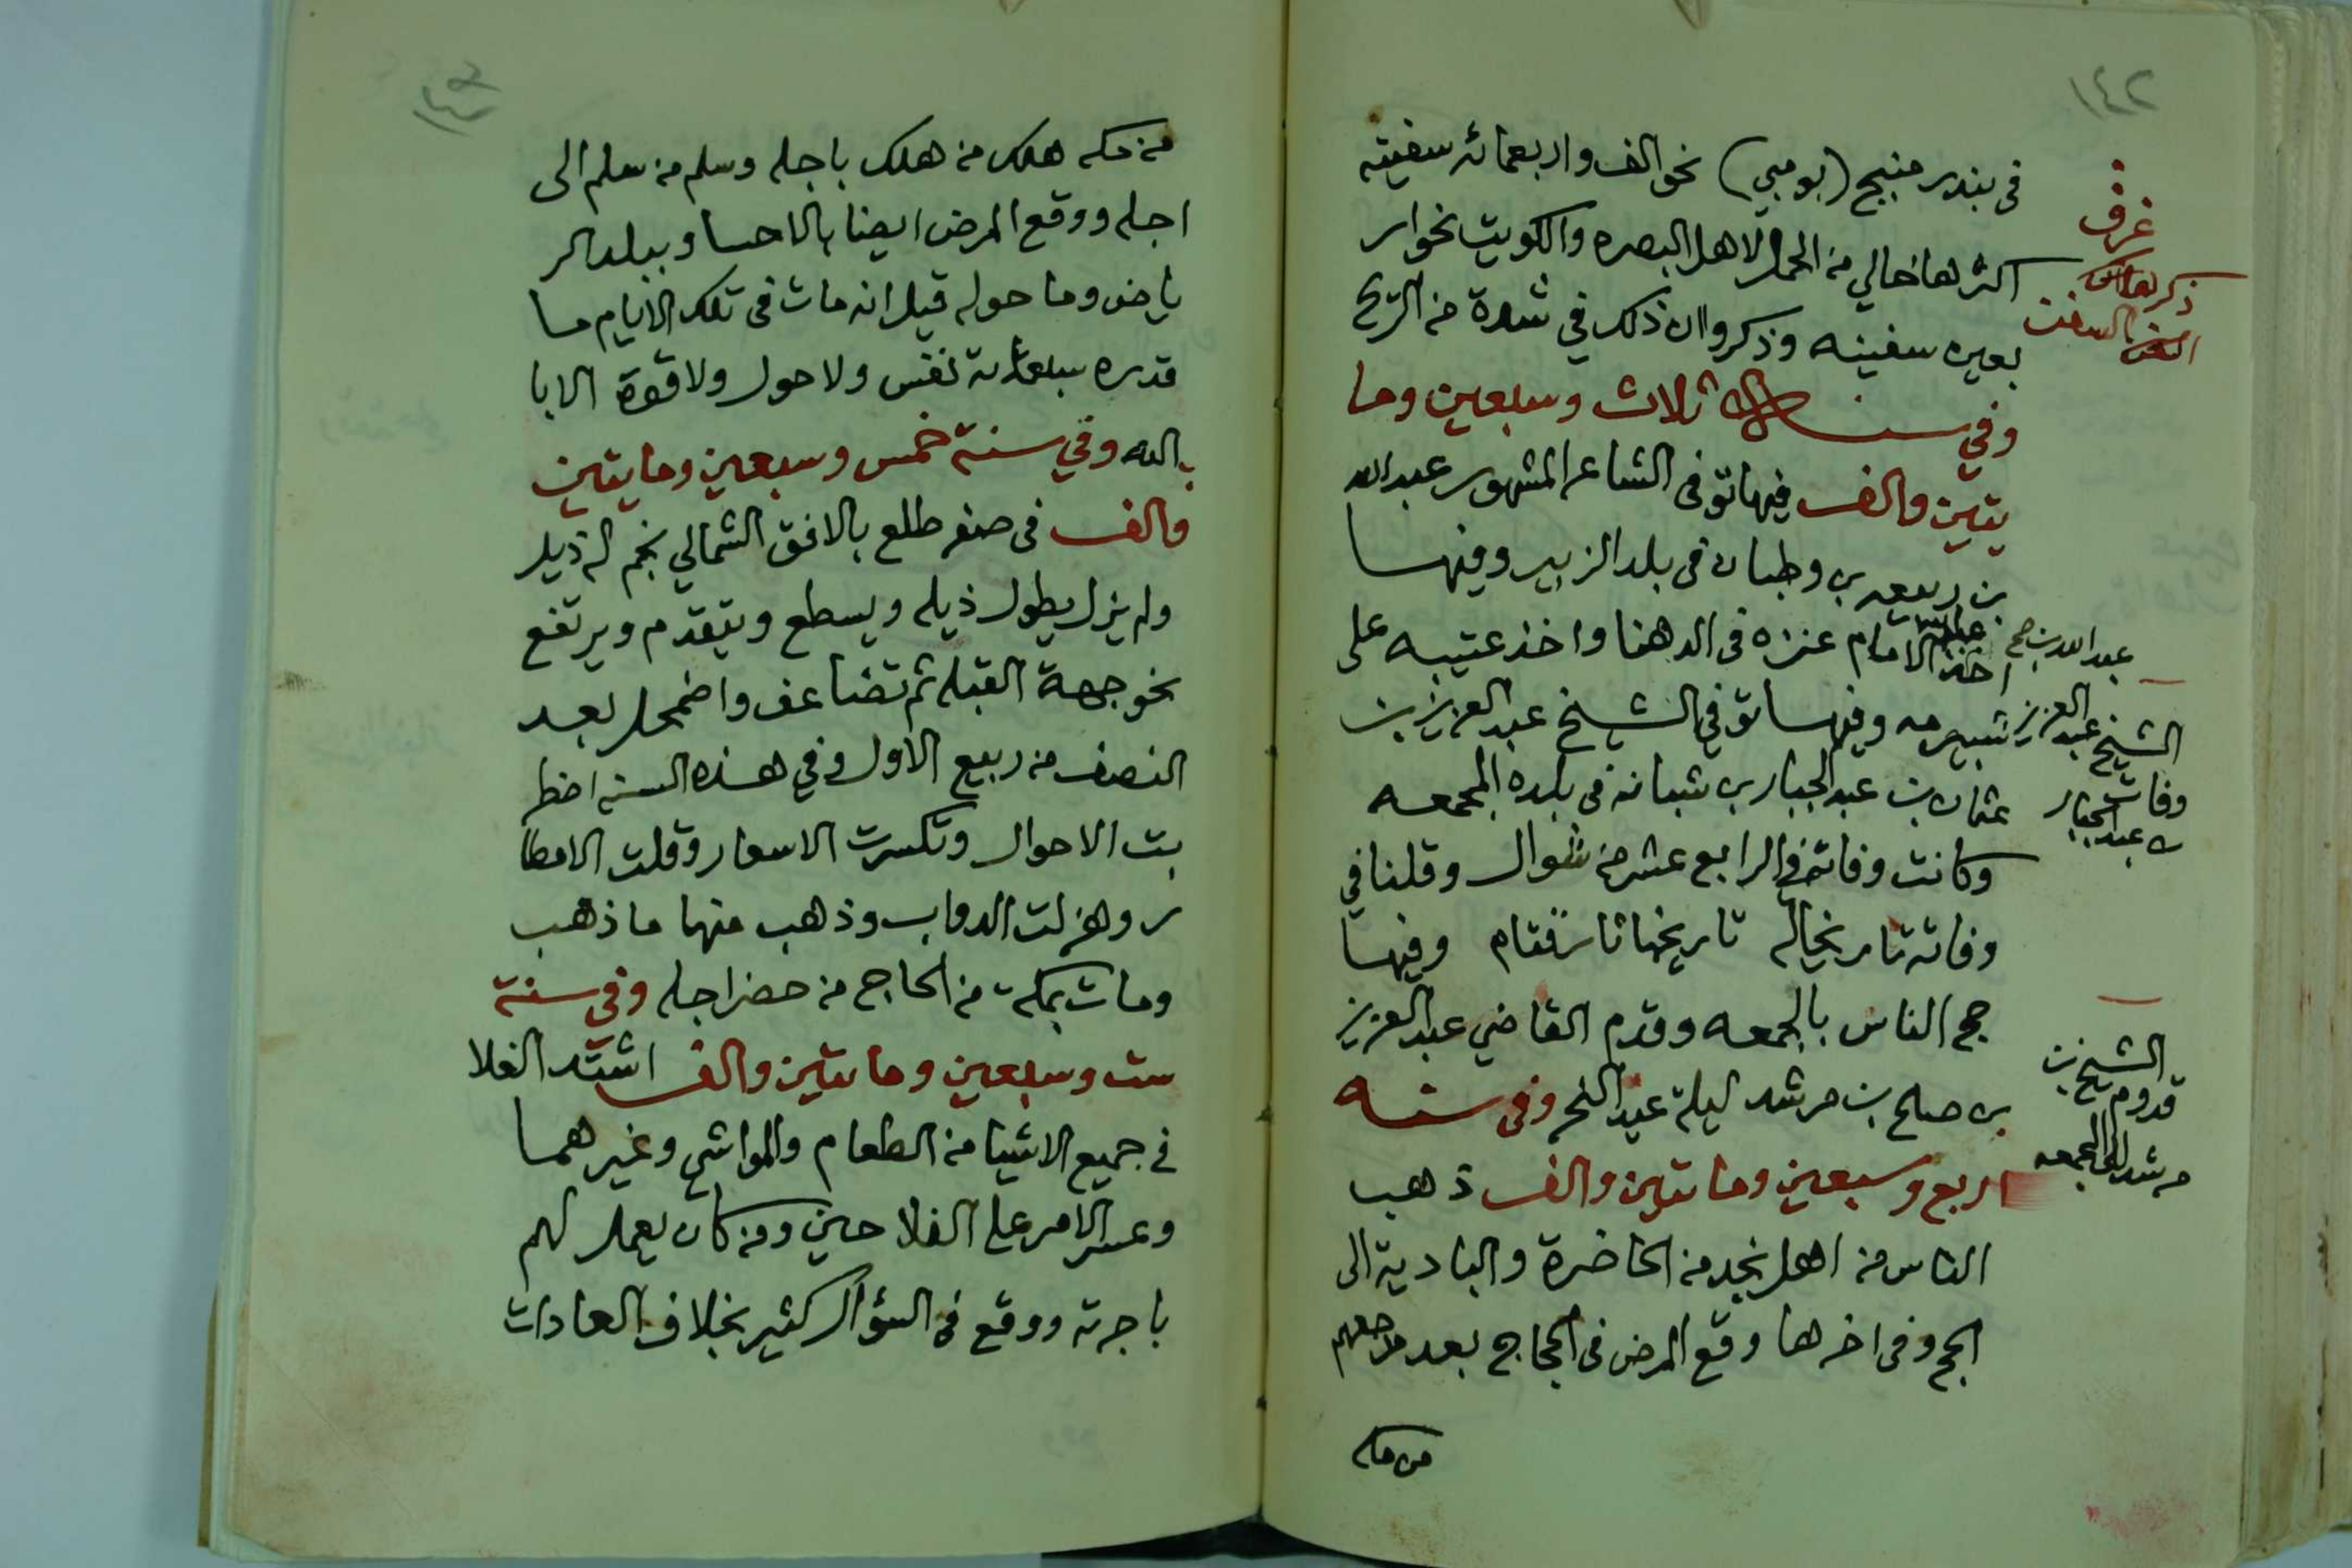 ١٤٢
في بندر منبيج (بومبي) نحو الف واربعمائه سفينه
اكثرها خالي من الحمل لاهل البصره والكويت نحو ار
بعين سفينه وذكروا ان ذلك في شدة من الريح
وفي سنة ثلاث وسبعين وما
يتين والف فيها توفى الشاعر المشهور عبدالله
بن ربيعه بن وطبان في بلد الزبير وفيها
اخذ الامام عنزه في الدهنا واخذ عتيبه على
شبيرمه وفيها توفي الشيخ عبدالعزيز بن
عثمان بن عبدالجبار بن شبانه في بلده المجمعه
وكانت وفاته في الرابع عشر من شوال وقلنا في
وفاته تاريخا له تاريخها وفيها
حج الناس بالجمعه وقدم القاضي عبدالعزيز
بن صلح بن مرشد ليلة عيد النحر وفي سنه
اربع وسبعين ومايتين والف ذهب
الناس من اهل نجد من الحاضرة والبادية الى
الحج وفي اخرها وقع المرض في الحجاج بعد
من مكه
غرف
ذكر
السفن
عبدالله بن
الشيخ عبدالعزيز
وفات
بن عبدالجبار
الشيخ بن
قدوم
مرشد الى المجمعه
من مكه هلك من هلك باجله وسلم من سلم الى
اجله ووقع المرض ايضا بالاحسا وببلد الر
ياض وما حوله قيل انه مات في تلك الايام ما
قدره سبعمائة نفس ولا حول ولا قوة الا با
بالله وفي سنة خمس وسبعين ومايتين
والف في صفر طلع بالافق الشمالي نجم له ذيل
ولم يزل يطول ذيله ويسطع ويتقدم ويرتفع
نحو جهة القبله ثم تضاعف واضمحل بعد
النصف من ربيع الاول وفي هذه السنه اضطر
بت الاحوال وتكسرت الاسعار وقلت الامطا
ر وهزلت الدواب وذهب منها ما ذهب
ومات بمكة من الحاج من حضر اجله وفي سنة
ست وسبعين ومايتين والف اشتد الغلا
في جميع الاشيا من الطعام والمواشي وغيرهما
وعسر الامر على الفلاحين ومن كان يعمل لهم
باجرته ووقع في السؤال كثير بخلاف العادات